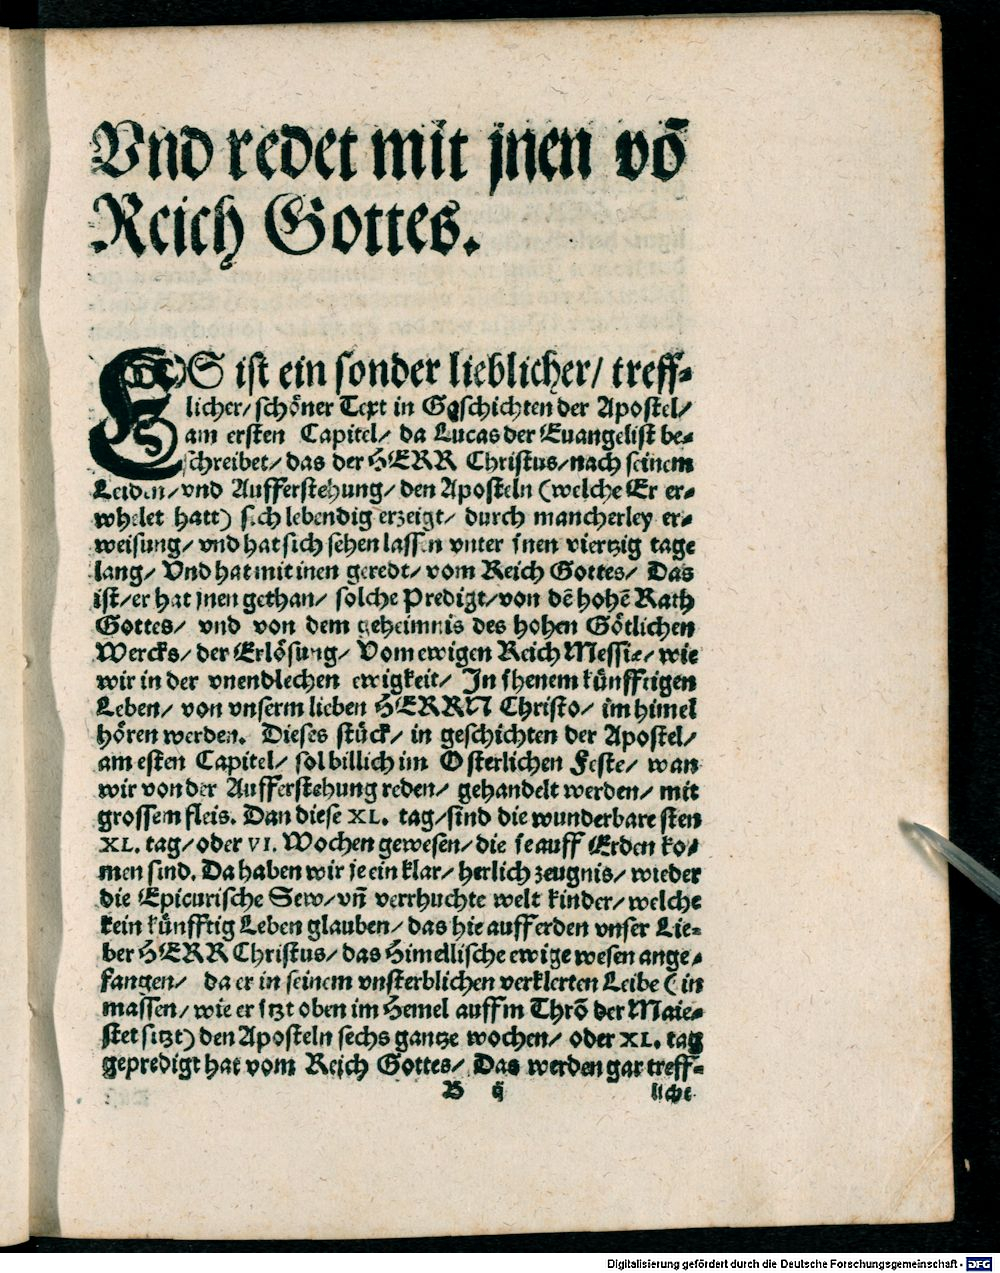 Vnd redet mit jnen võ
Reich Gottes.
ES ist ein sonder lieblicher/ treff-
licher/ schöner Text in Geschichten der Apostel/
am ersten Capitel/ da Lucas der Euangelist be-
schreibet/ das der HERR Christus/ nach seinem
Leiden/ vnd Aufferstehung/ den Aposteln (welche Er er-
whelet hatt) sich lebendig erzeigt/ durch mancherley er-
weisung/ vnd hat sich sehen lassen vnter inen viertzig tage
lang/ Vnd hat mit inen geredt/ vom Reich Gottes/ Das
ist/ er hat jnen gethan/ solche Predigt/ von dē hohē Rath
Gottes/ vnd von dem geheimnis des hohen Götlichen
Wercks/ der Erlösung/ Vom ewigen Reich Messie/ wie
wir in der vnendlechen ewigkeit/ In ihenem künfftigen
Leben/ von vnserm lieben HERRN Christo/ im himel
hören werden. Dieses stück/ in geschichten der Apostel/
am esten Capitel/ sol billich im Osterlichen Feste/ wan
wir von der Aufferstehung reden/ gehandelt werden/ mit
grossem fleis. Dan diese XL. tag/ sind die wunderbaresten
XL. tag/ oder VI. Wochen gewesen/ die ie auff Erden ko-
men sind. Da haben wir je ein klar/ herlich zeugnis/ wieder
die Epicurische Sew/ vñ verrhuchte welt kinder/ welche
kein künfftig Leben glauben/ das hie auff erden vnser Lie-
ber HERR Christus/ das Himellische ewige wesen ange-
fangen/ da er in seinem vnsterblichen verklerten Leibe (in
massen/ wie er itzt oben im Hemel auffm Thrõ der Maie-
stet sitzt) den Aposteln sechs gantze wochen/ oder XL. tag
gepredigt hat vom Reich Gottes/ Das werden gar treff-
B ij licht
Digitalisierung gefördert durch die Deutsche Forschungsgemeinschaft - DFG